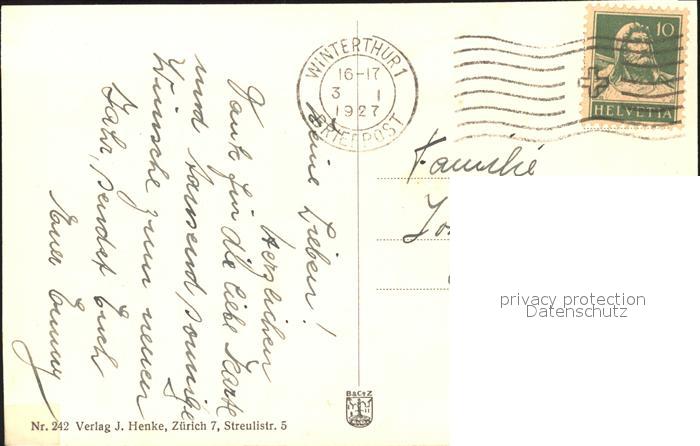 Meine Lieben!
Herzlichen
Dank für die liebe Karte
und tausend sonnige
Wünsche zum neuen
Jahr, sendet Euch
Euer Emmy
WINTERTHUR 1
16-17
3 I
1927
BRIEFPOST
10
HELVETIA
Familie
privacy protection
Datenschutz
B&CtZ
Nr. 242 Verlag J. Henke, Zürich 7, Streulistr. 5